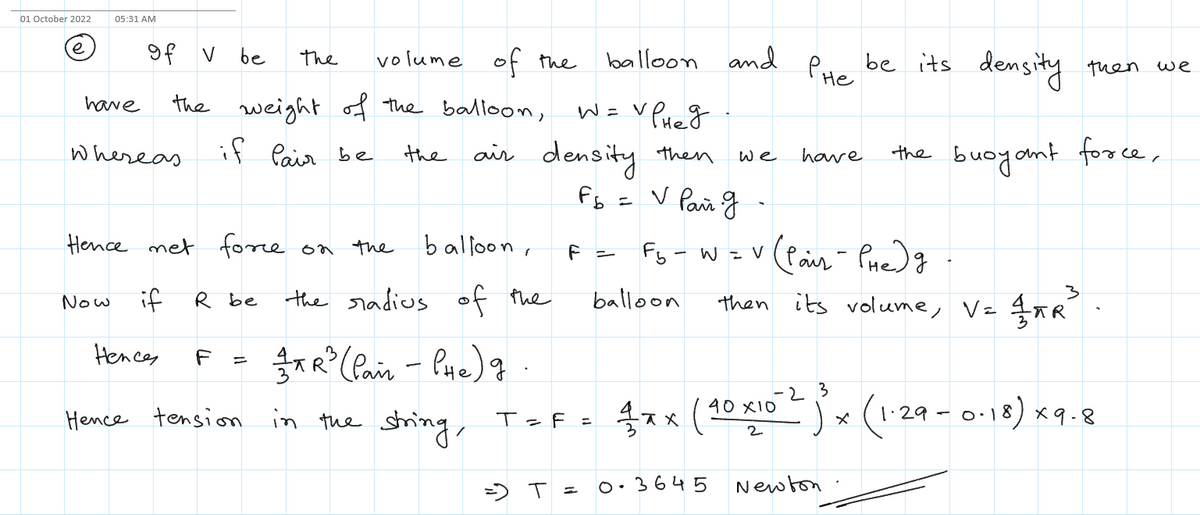 01 October 2022 05:31 AM
(e) If V be the volume of the balloon and ρHe be its density then we
have the weight of the balloon, W = VρHeg.
Whereas if ρair be the air density then we have the buoyant force,
Fb = Vρair g.
Hence net force on the balloon, F = Fb - W = V(ρair - ρHe)g.
Now if R be the radius of the balloon then its volume, V = 4/3 πR³.
Hence, F = 4/3 πR³(ρair - ρHe)g.
Hence tension in the string, T = F = 4/3 π × (40 × 10⁻²/2)³ × (1.29 - 0.18) × 9.8
⇒ T = 0.3645 Newton.